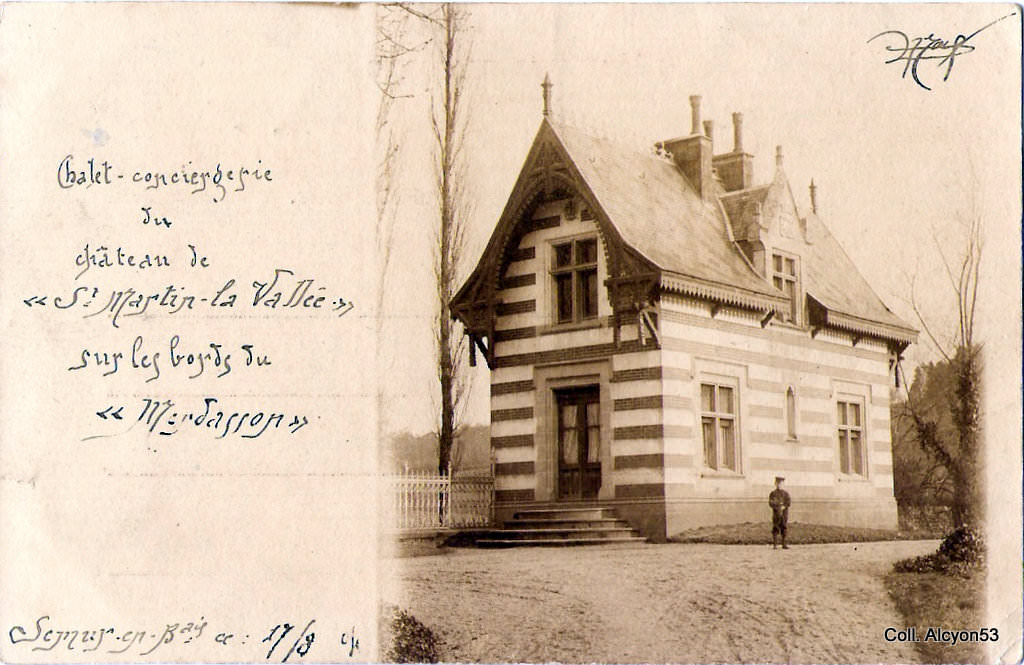 Chalet-conciergerie
du
château de
« St Martin-la Vallée »
sur les bords du
« Merdasson »
Semur-en-Bais
17/8
Coll. Alcyon53